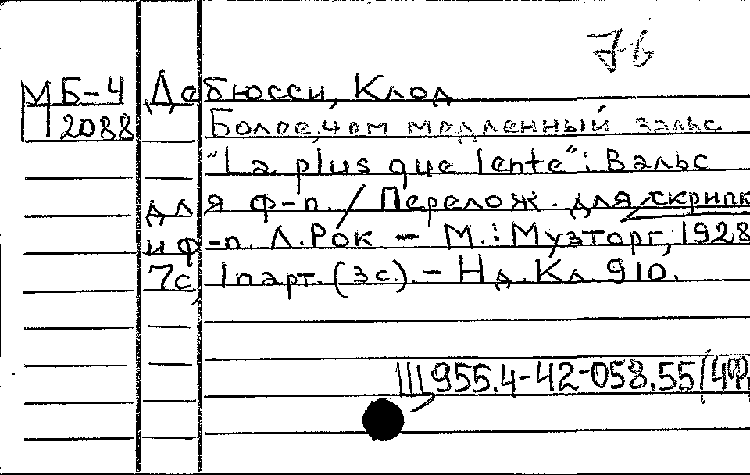 76
МБ-4 Дебюсси, Клод
2088 Более, чем медленный вальс
"La plus que lente": Вальс
для ф-п. / Перелож. для скрипк
и ф-п. Л. Рок - М.: Музторг, 1928
7с, 1 парт. (3с). - Н.д. Кл 910.
Ш955.4-42-058.55(4Ф